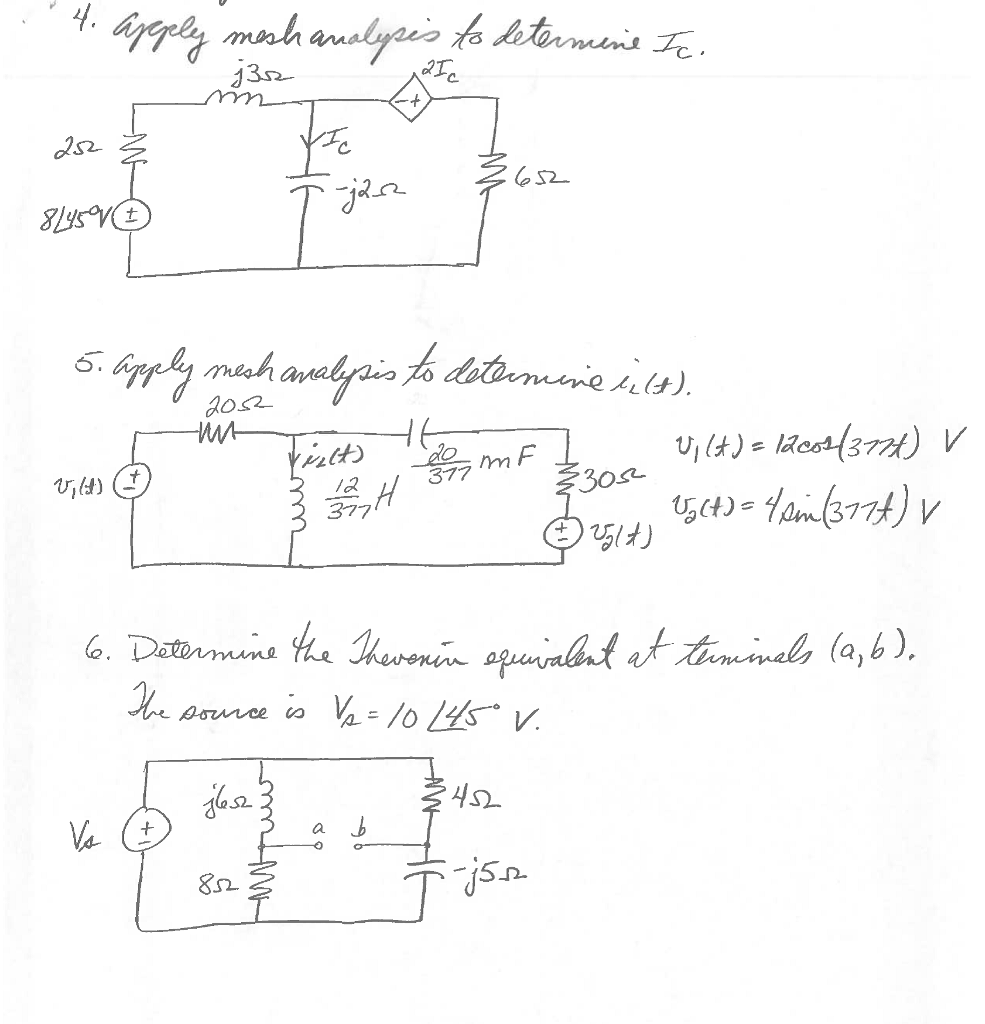 4. Apply mesh analysis to determine I_C.
j3Ω
2I_C
- +
2Ω
I_C
-j2Ω
6Ω
8∠45°V
±
5. Apply mesh analysis to determine i_L(t).
20Ω
i_L(t)
20/377 mF
v₁(t) = 12cos(377t) V
v₁(t)
±
12/377 H
30Ω
v₂(t) = 4 sin(377t) V
±
v₂(t)
6. Determine the Thevenin equivalent at terminals (a, b).
The source is V_s = 10∠45° V.
j6Ω
4Ω
V_s
±
a
b
8Ω
-j5Ω